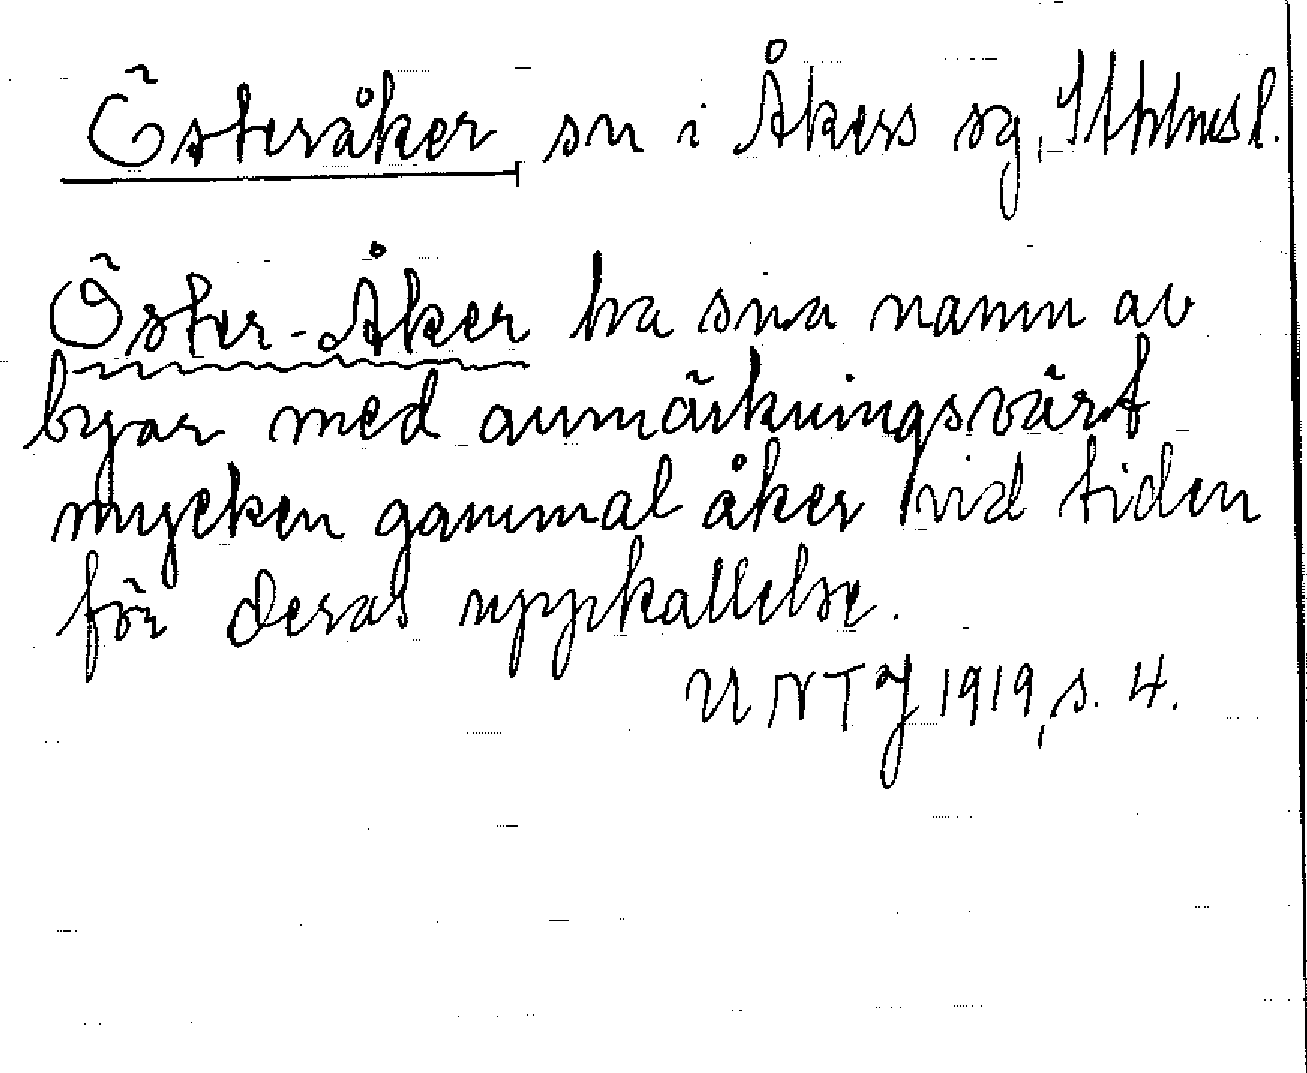 Österåker sn i Åkers sg, Sthlms l.
Öster-Åker ha sina namn av
byar med anmärkningsvärt
mycken gammal åker vid tiden
för deras uppkallelse.
UNTJ 1919, s. 4.